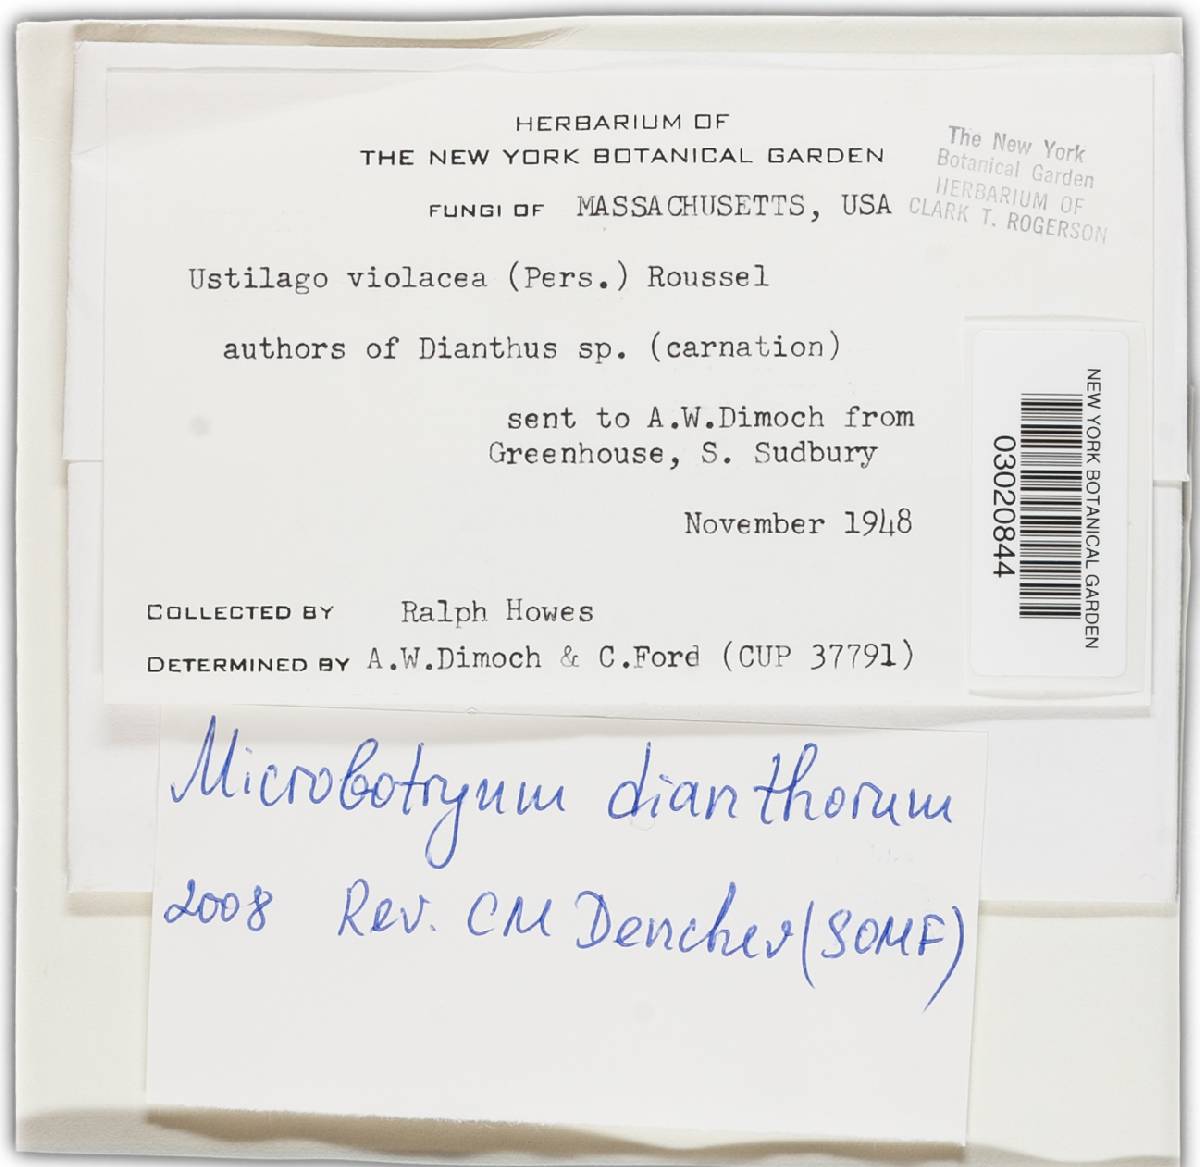 HERBARIUM OF
THE NEW YORK BOTANICAL GARDEN
FUNGI OF MASSACHUSETTS, USA
The New York
Botanical Garden
HERBARIUM OF
CLARK T. ROGERSON
Ustilago violacea (Pers.) Roussel
authors of Dianthus sp. (carnation)
sent to A.W.Dimoch from
Greenhouse, S. Sudbury
November 1948
COLLECTED BY Ralph Howes
DETERMINED BY A.W.Dimoch & C.Ford (CUP 37791)
NEW YORK BOTANICAL GARDEN
03020844
Microbotryum dianthorum
2008 Rev. CM Denchev (SOMF)